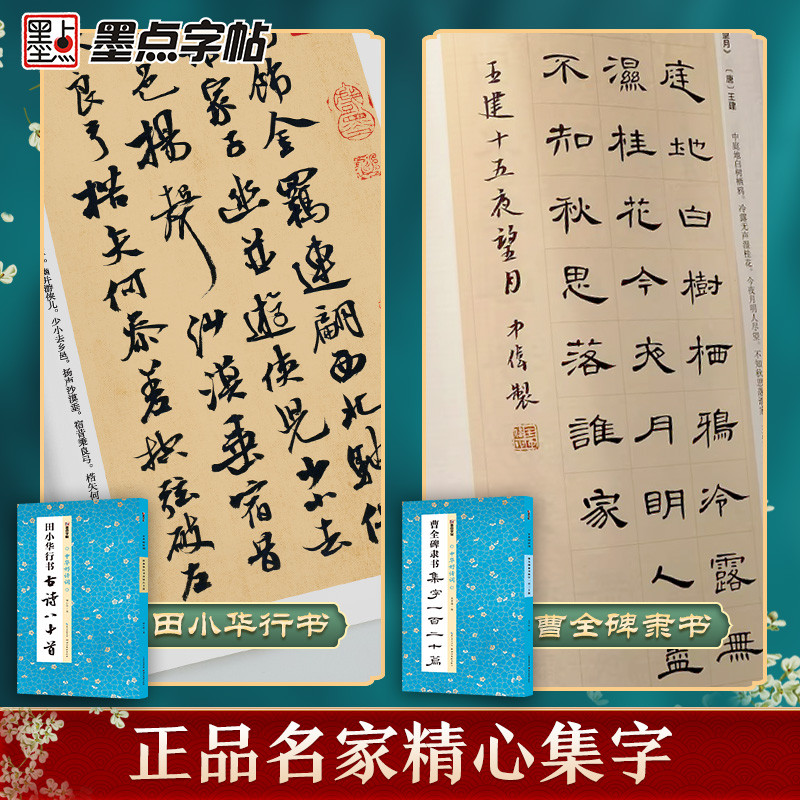 墨点字帖
飾金羈連翩西北馳
家子幽並遊俠兒少小去
邑揚聲沙漠垂宿昔
良弓楛矢何參差控弦破左
少小去乡邑。扬声沙漠垂。宿昔秉良弓。楛矢何
望月》 〔唐〕王建
中庭地白树栖鸦,冷露无声湿桂花。今夜月明人尽望,不知秋思落谁家
庭地白樹栖鴉冷露無
濕桂花今夜月明人盡
不知秋思落誰家
王建十五夜望月
製
田小华行书
古诗八十首
中华好诗词
田小华行书
曹全碑隶书
集字一百二十篇
中华好诗词
曹全碑隶书
正品名家精心集字